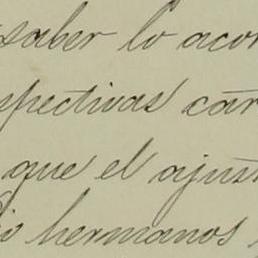 saber lo acor
spectivas cár
que el ajust
io hermanos